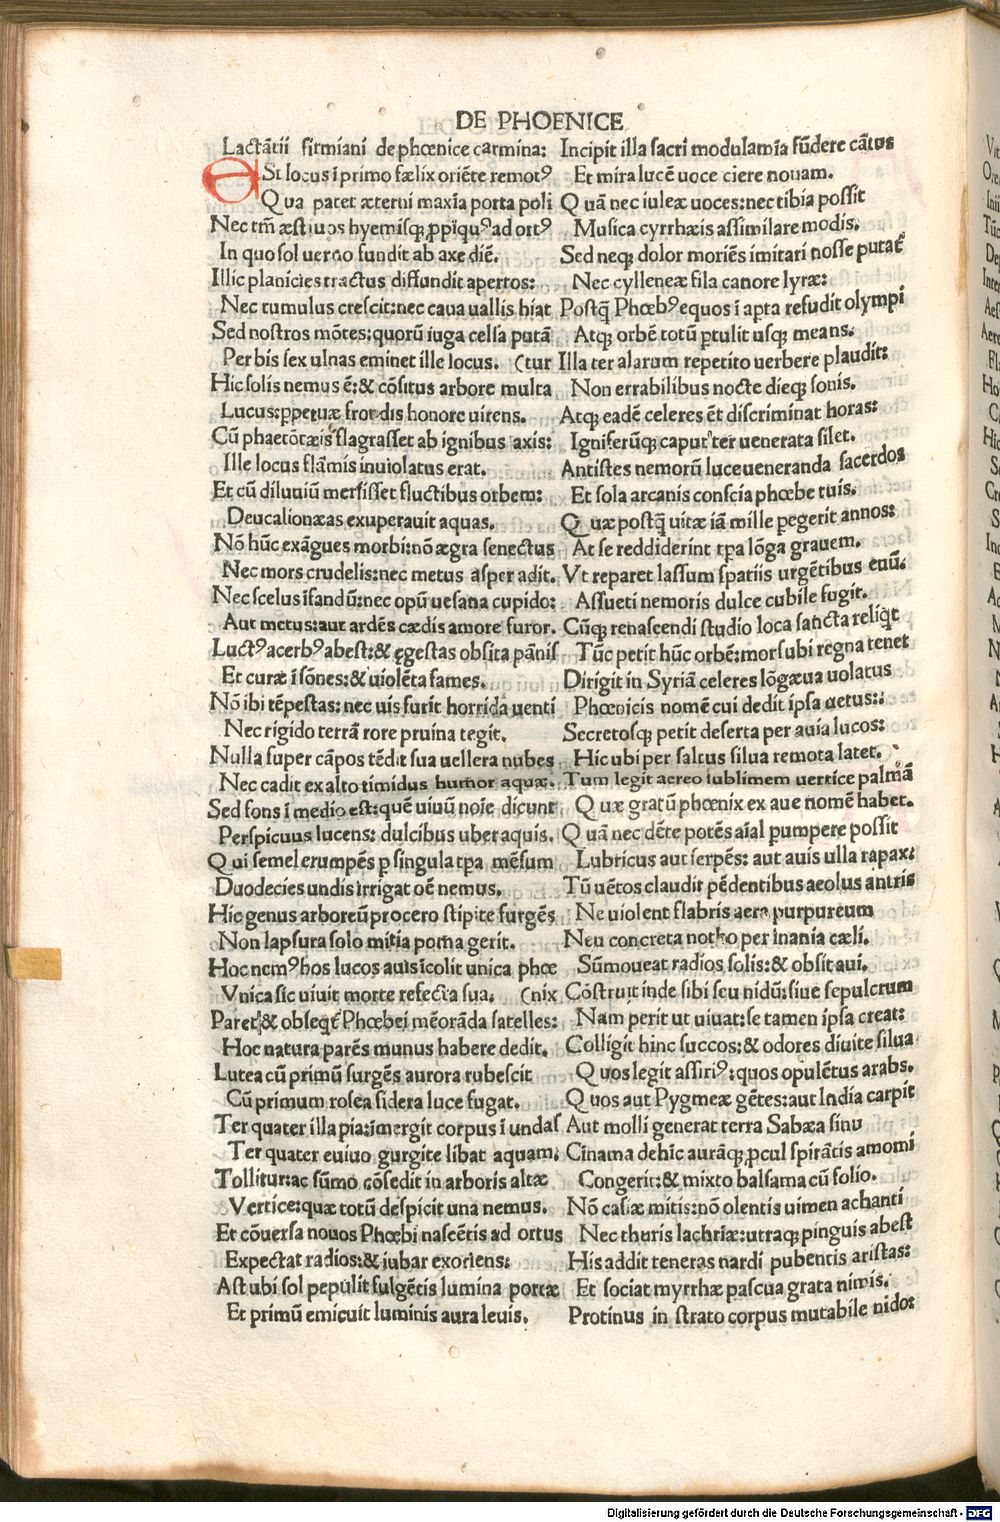 DE PHOENICE
Lactãtii firmiani de phœnice carmina:
ESt locus ĩ primo fælix oriẽte remotꝰ
Qua patet æterni maxĩa porta poli
Nec tm̃ æstiuos hyemisqꝫ ꝓpĩquꝰ ad ortꝰ
In quo sol uerno fundit ab axe diẽ.
Illic planicies tractus diffundit apertos:
Nec tumulus crescit: nec caua uallis hiat
Sed nostros mõtes: quorũ iuga celsa putã
Per bis sex ulnas eminet ille locus. (tur
Hic solis nemus ẽ: & cõsitus arbore multa
Lucus: ꝑpetuæ frondis honore uirens.
Cũ phaetõtæis flagrasset ab ignibus axis:
Ille locus flãmis inuiolatus erat.
Et cũ diluuiũ mersisset fluctibus orbem:
Deucalionæas exuperauit aquas.
Nõ hũc exãgues morbi: nõ ægra senectus
Nec mors crudelis: nec metus asper adit.
Nec scelus ĩfandũ: nec opũ uesana cupido:
Aut metus: aut ardẽs cædis amore furor.
Luctꝰ acerbꝰ abest: & ęgestas obsita pãnis
Et curæ ĩsõnes: & uiolẽta fames.
Nõ ibi tẽpestas: nec uis furit horrida uenti
Nec rigido terrã rore pruina tegit.
Nulla super cãpos tẽdit sua uellera nubes
Nec cadit ex alto timidus humor aquæ.
Sed fons ĩ medio est: quẽ uiuũ noĩe dicunt
Perspicuus lucens: dulcibus uber aquis.
Qui semel erumpẽs ꝑ singula tꝑa mẽsum
Duodecies undis irrigat oẽ nemus.
Hic genus arboreũ procero stipite surgẽs
Non lapsura solo mitia poma gerit.
Hoc nemꝰ hos lucos auis ĩcolit unica phœ
Vnica sic uiuit morte refecta sua. (nix
Paret & obseqt̃ Phœbei mẽorãda satelles:
Hoc natura parẽs munus habere dedit.
Lutea cũ primũ surgẽs aurora rubescit
Cũ primum rosea sidera luce fugat.
Ter quater illa pia: ĩmergit corpus ĩ undas
Ter quater e uiuo gurgite libat aquam:
Tollitur: ac sũmo cõsedit in arboris altæ
Vertice: quæ totũ despicit una nemus.
Et cõuersa nouos Phœbi nascẽtis ad ortus
Expectat radios: & iubar exoriens:
Ast ubi sol pepulit fulgẽtis lumina portæ
Et primũ emicuit luminis aura leuis.
Incipit illa sacri modulamĩa fũdere cãtus
Et mira lucẽ uoce ciere nouam.
Quã nec iuleæ uoces: nec tibia possit
Musica cyrrhæis assimilare modis.
Sed neqꝫ dolor moriẽs imitari nosse putat᷑
Nec cylleneæ fila canore lyræ:
Postq̃ Phœbꝰ equos ĩ apta refudit olympi
Atqꝫ orbẽ totũ ꝓtulit usqꝫ means.
Illa ter alarum repetito uerbere plaudit:
Non errabilibus nocte dieqꝫ sonis.
Atqꝫ eadẽ celeres ẽt discriminat horas:
Igniferũqꝫ caput ter uenerata silet.
Antistes nemorũ luce ueneranda sacerdos
Et sola arcanis conscia phœbe tuis.
Quæ postq̃ uitæ iã mille pegerit annos:
At se reddiderint tꝑa lõga grauem.
Vt reparet lassum spatiis urgẽtibus euũ.
Assueti nemoris dulce cubile fugit.
Cũqꝫ renascendi studio loca sãcta reliqt̃
Tũc petit hũc orbẽ: mors ubi regna tenet
Dirigit in Syriã celeres lõgæua uolatus
Phœnicis nomẽ cui dedit ipsa uetus::
Secretosqꝫ petit deserta per auia lucos:
Hic ubi per saltus silua remota latet.
Tum legit aereo sublimem uertice palmã
Quæ gratũ phœnix ex aue nomẽ habet.
Quã nec dẽte potẽs aĩal ꝑumpere possit
Lubricus aut serpẽs: aut auis ulla rapax:
Tũ uẽtos claudit pẽdentibus aeolus antris
Ne uiolent flabris aera purpureum
Neu concreta notho per inania cæli.
Sũmoueat radios solis: & obsit aui.
Cõstruit inde sibi seu nidũ: siue sepulcrum
Nam perit ut uiuat: se tamen ipsa creat:
Colligit hinc succos: & odores diuite silua
Quos legit assiriꝰ: quos opulẽtus arabs.
Quos aut Pygmeæ gẽtes: aut India carpit
Aut molli generat terra Sabæa sinu
Cinama dehic aurãqꝫ ꝓcul spirãtis amomi
Congerit: & mixto balsama cũ folio.
Nõ casiæ mitis: nõ olentis uimen achanti
Nec thuris lachrĩæ: utraqꝫ pinguis abest
His addit teneras nardi pubentis aristas:
Et sociat myrrhæ pascua grata nimis.
Protinus in strato corpus mutabile nido:
Digitalisierung gefördert durch die Deutsche Forschungsgemeinschaft - DFG